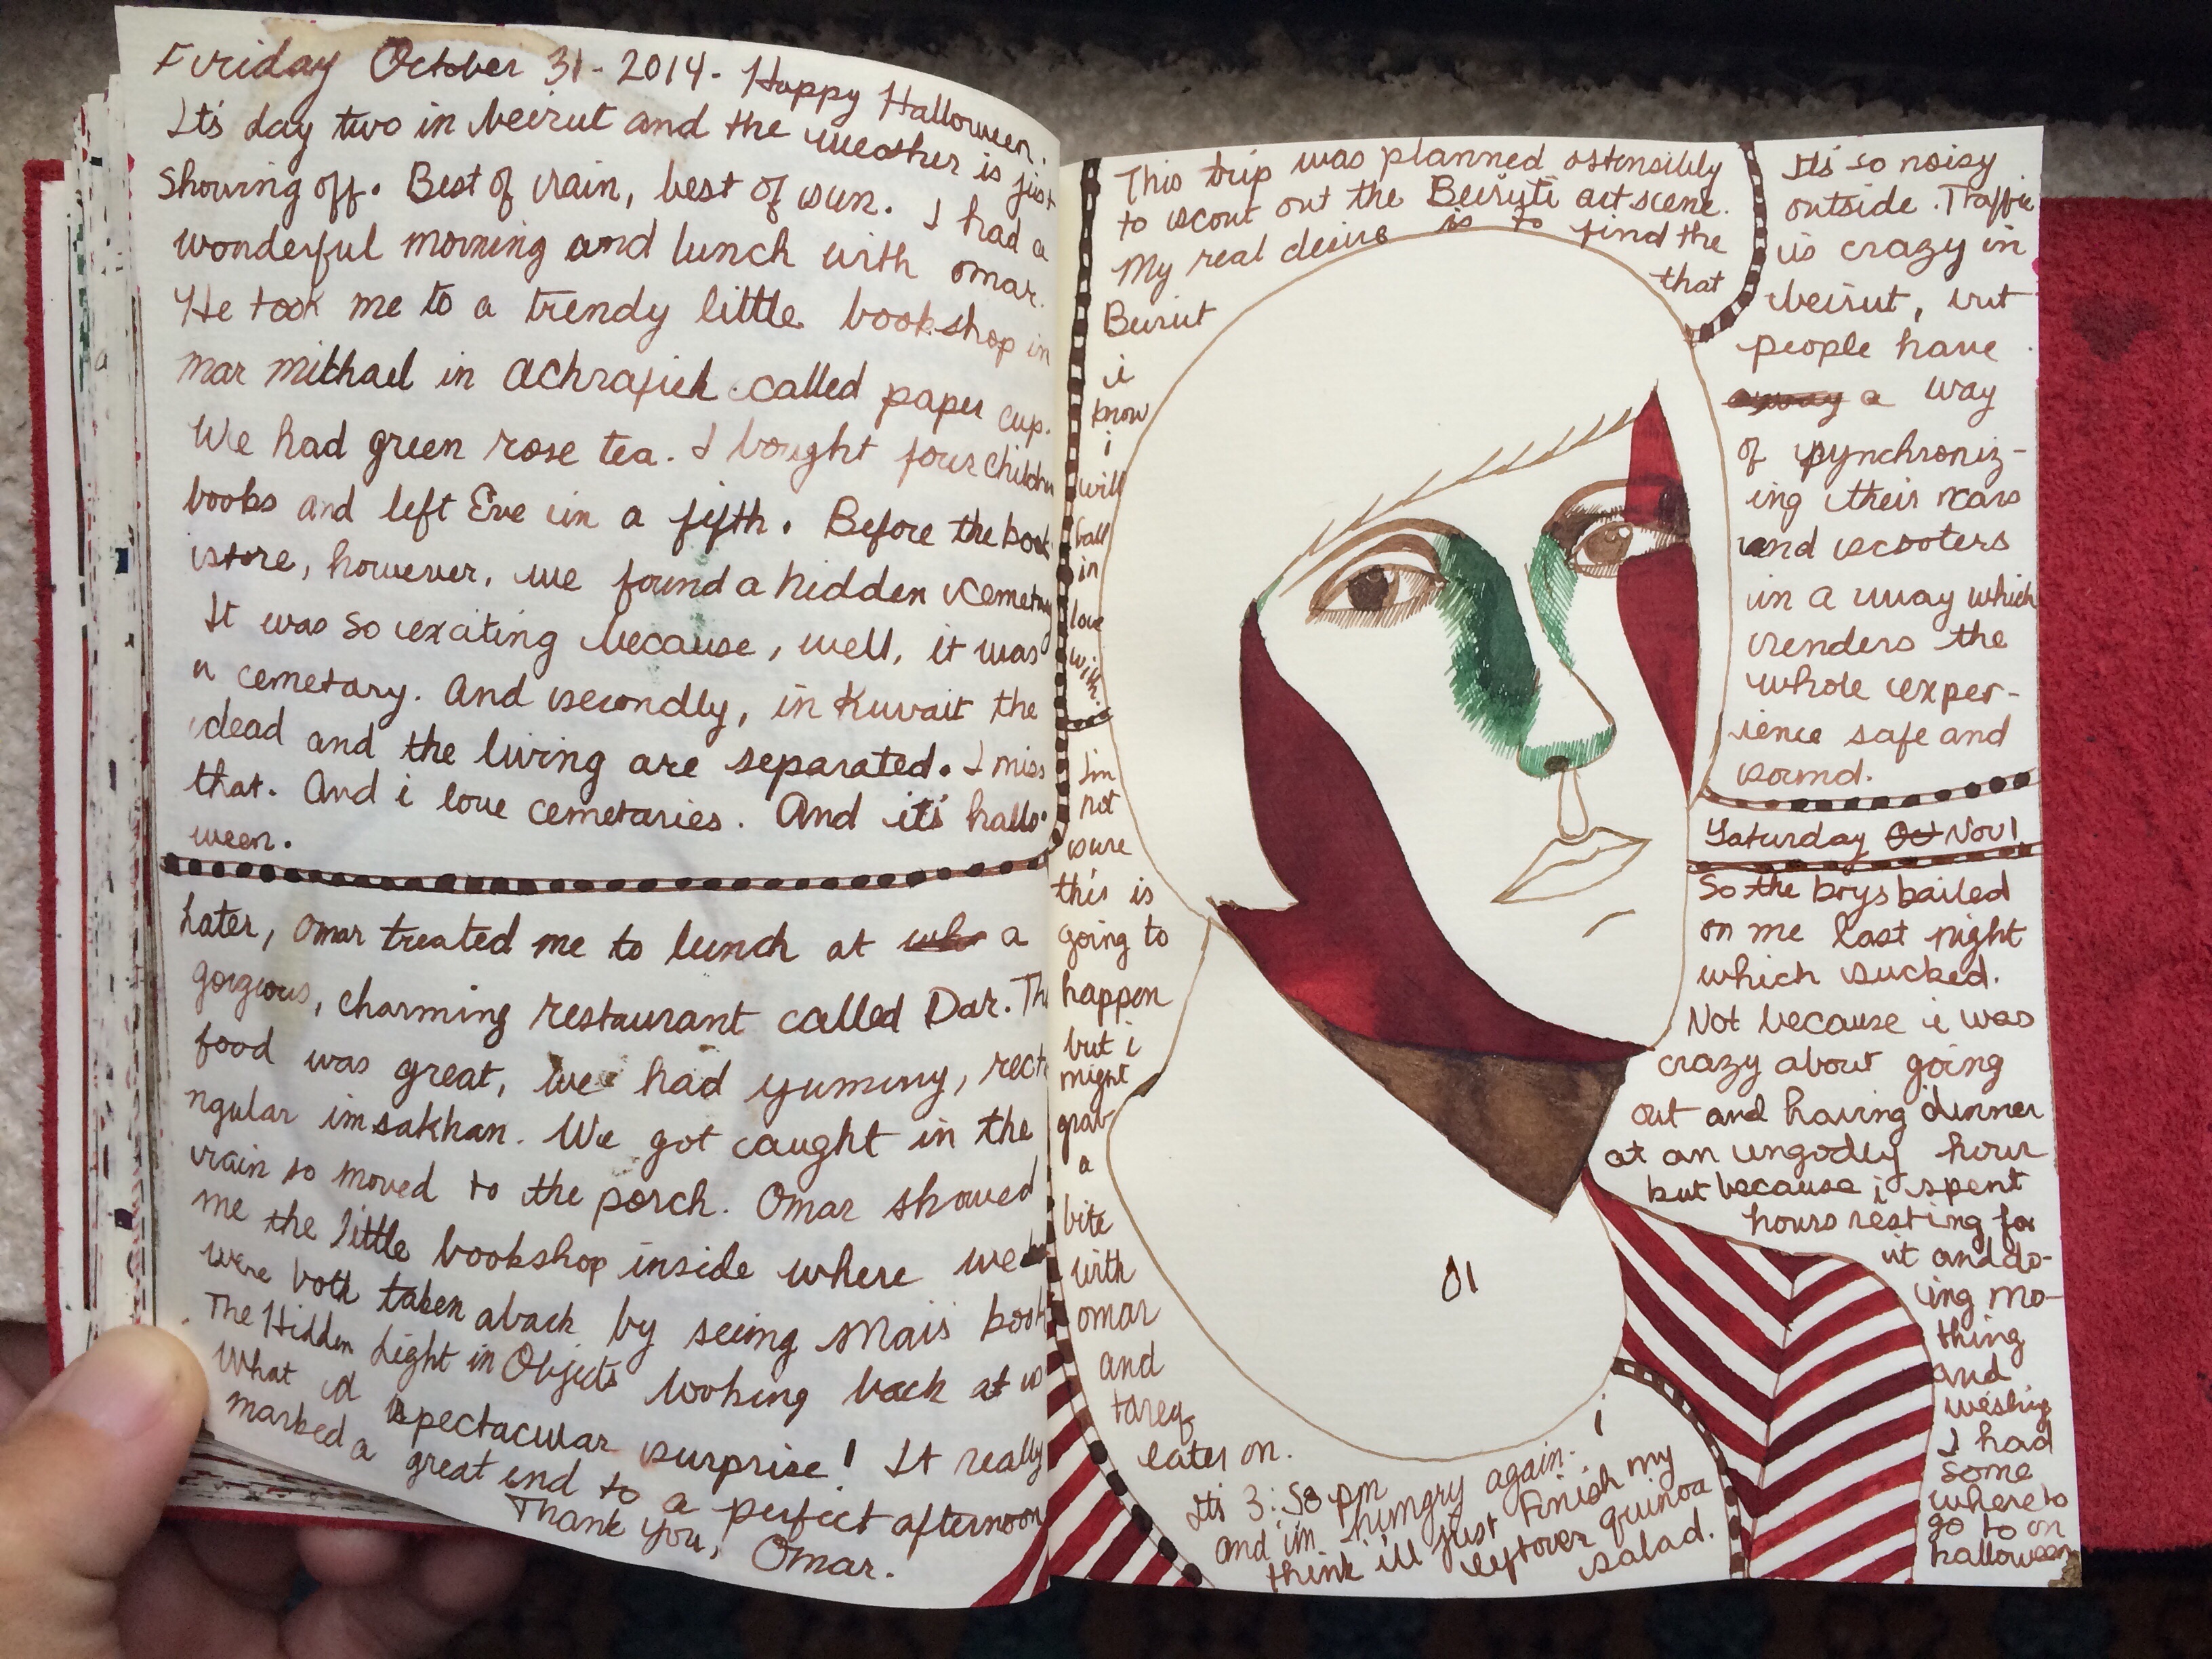 Friday October 31 - 2014 - Happy Halloween.
It's day two in beirut and the weather is just
showing off. Best of rain, best of sun. I had a
wonderful morning and lunch with omar.
He took me to a trendy little bookshop in
mar mikhael in achrafieh called paper cup.
We had green rose tea. I bought four children
books and left Eve in a fifth. Before the book
store, however, we found a hidden cemetary
It was so exciting because, well, it was
a cemetary. And secondly, in Kuwait the
dead and the living are separated. I miss
that. And i love cemetaries. And it's hallo-
ween.
Later, omar treated me to lunch at a
gorgeous, charming restaurant called Dar. The
food was great, we had yummy, recta
ngular imsakhan. We got caught in the
rain so moved to the porch. Omar showed
me the little bookshop inside where we
were both taken aback by seeing Mais book
The Hidden Light in Objects looking back at us
What a spectacular surprise! It really
marked a great end to a perfect afternoon
Thank you, Omar.
This trip was planned ostensibly
to scout out the Beiruti art scene.
My real desire is to find the
that
Beirut
i
know
i
will
fall
in
love
with.
I'm
not
sure
this is
going to
happen
but i
might
grab
a
bite
with
omar
and
tareq
later on.
It's 3:58 pm
and im hungry again. i
think i'll just finish my
leftover quinoa
salad.
It's so noisy
outside. Traffic
is crazy in
beirut, but
people have
a way
of synchroniz-
ing their cars
and scooters
in a way which
renders the
whole exper-
ience safe and
sound.
Saturday Nov 1
So the boys bailed
on me last night
which sucked.
Not because i was
crazy about going
out and having dinner
at an ungodly hour
but because i spent
hours resting for
it and do-
ing no-
thing
and
wishing
I had
some
where to
go to on
halloween